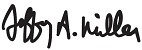 Jeffry A. Miller